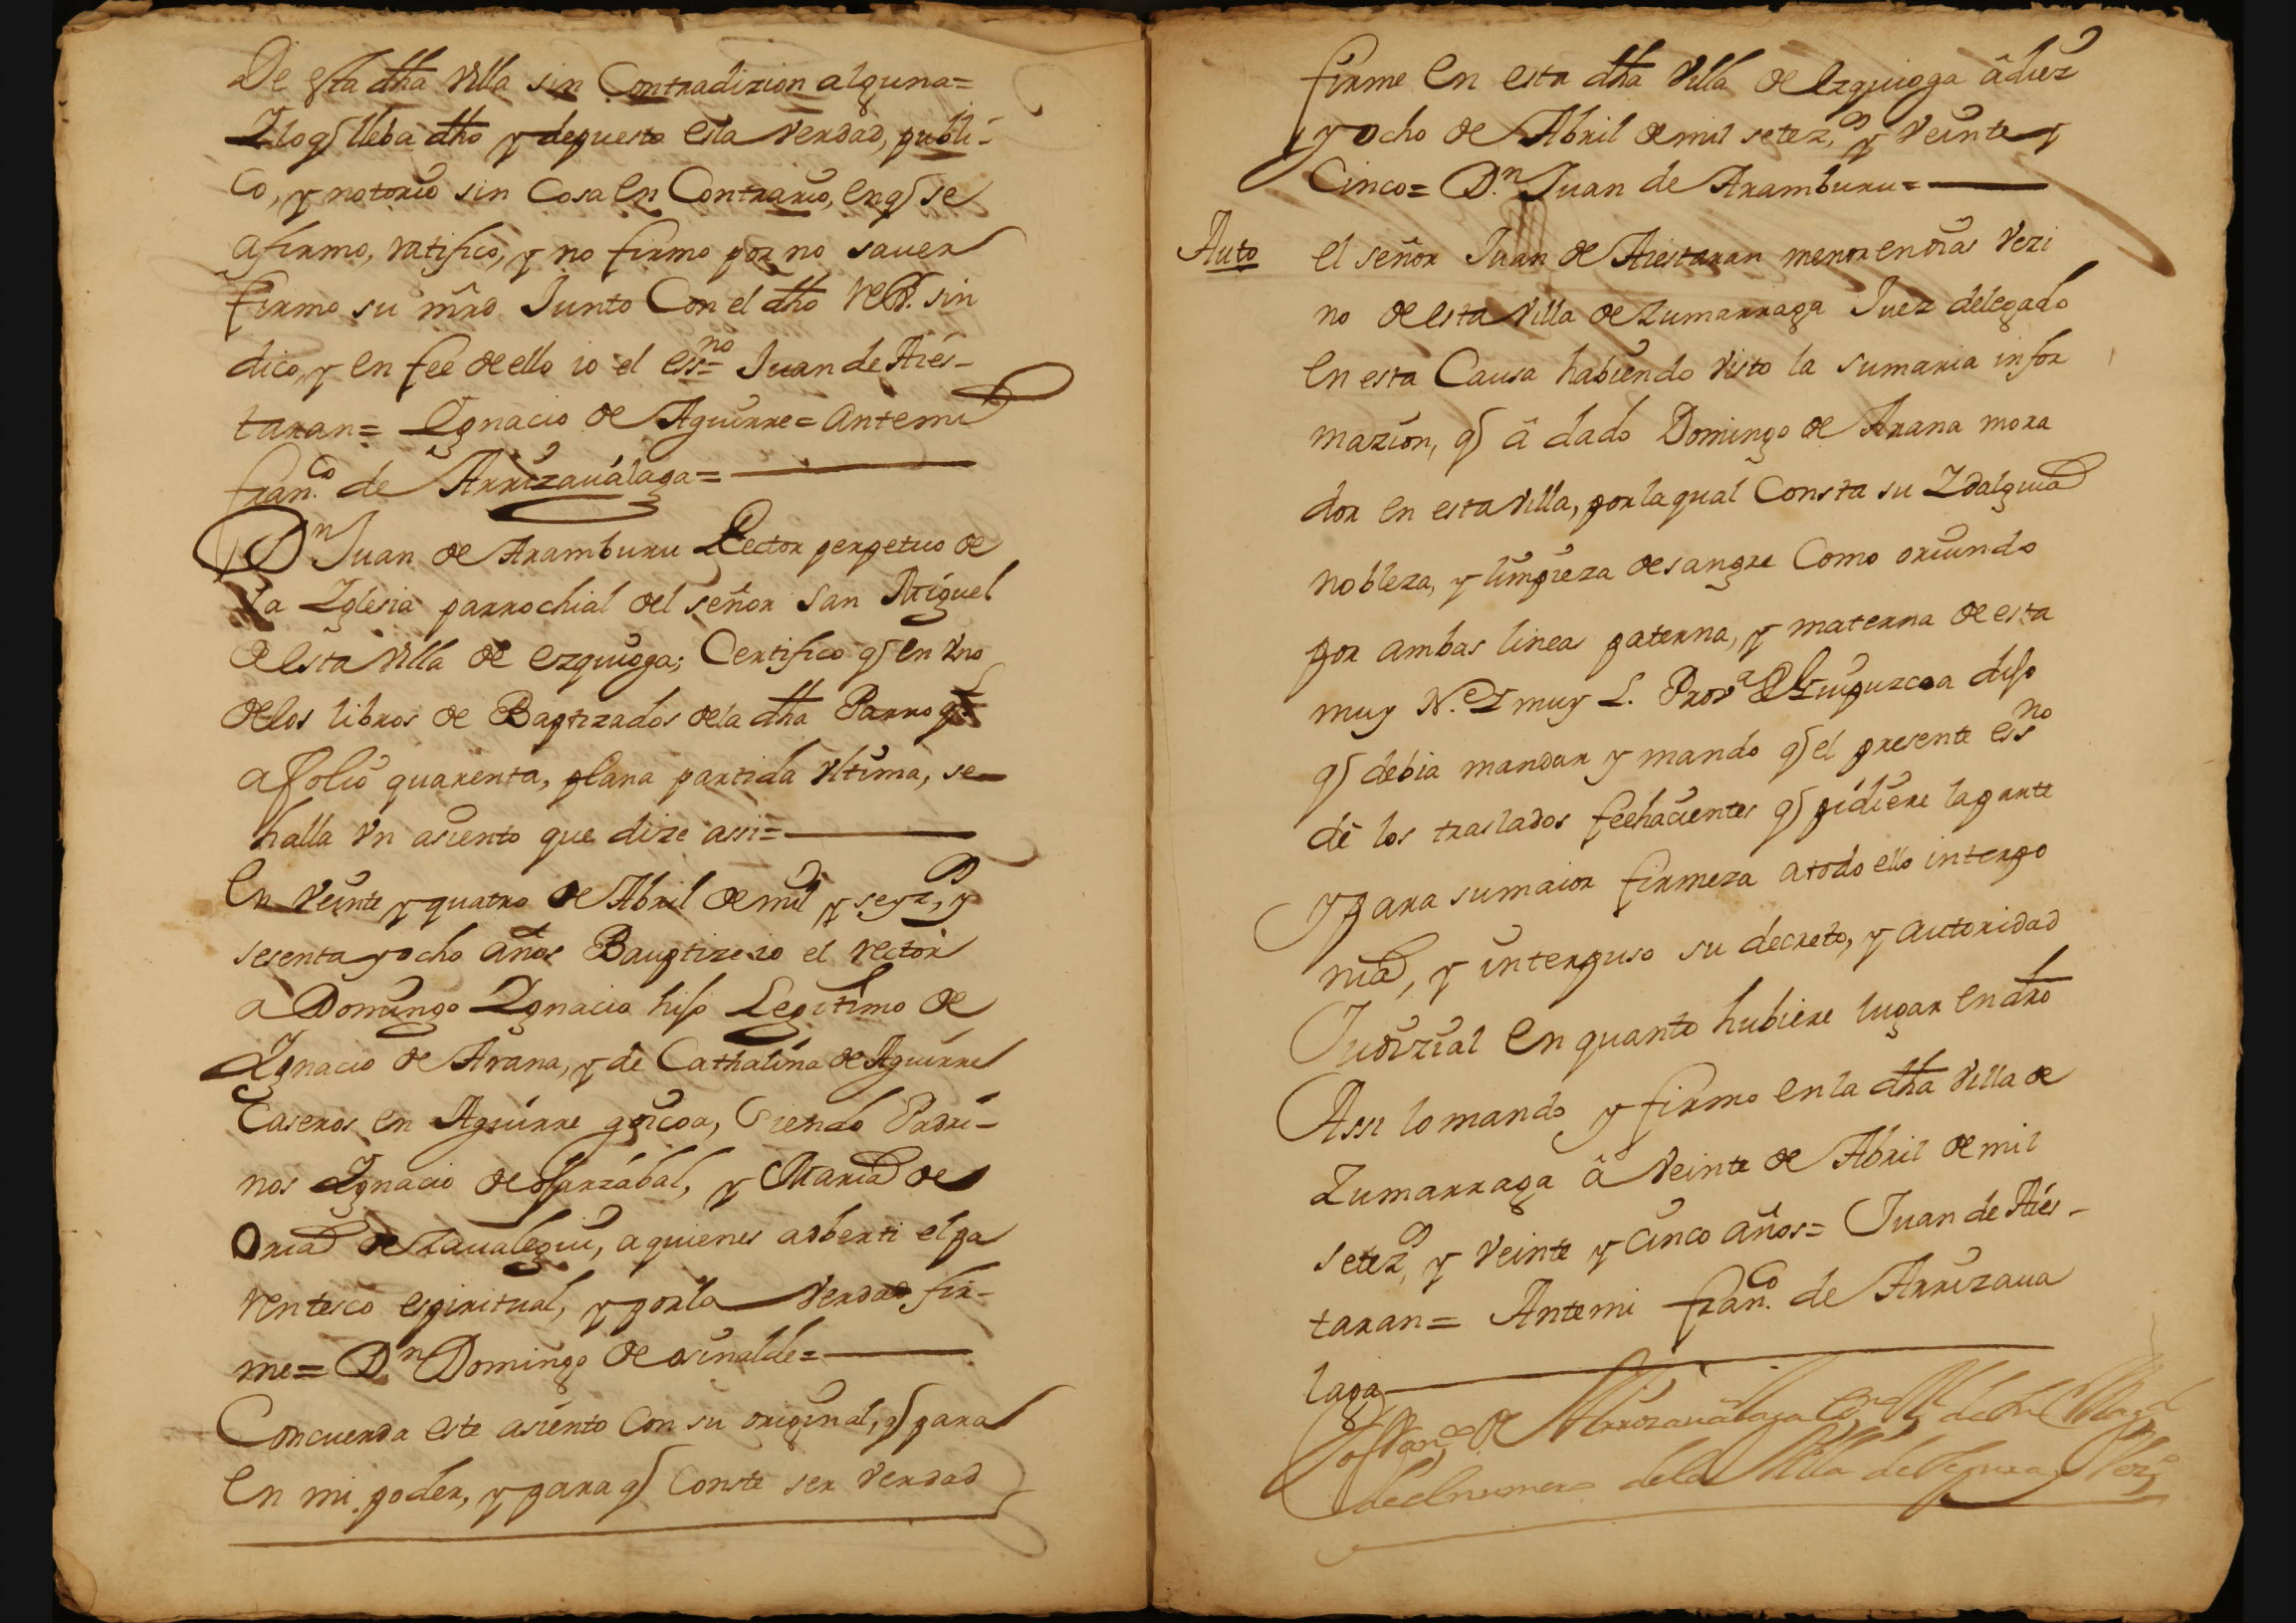 De esta dha Villa sin Contradizion alguna=
Y lo q lleba dho y depuesto es la verdad, publi-
co, y notorio sin Cosa en Contrario, en q se
afirmo, ratifico, y no firmo por no sauer
firmo su mrd Junto Con el dho Rdr. sin
dico, y en fee de ello io el essno Juan de Ares-
taran= Ygnacio de Aguirre= Antemi
Franco. de Arrizauálaga=
Dn Juan de Aramburu Rector perpetuo de
la Yglesia parrochial del señor San Miguel
de esta Villa de ezquioga; Certifico q en Vno
de los libros de Baptizados de la dha Parroqa
a folio quarenta, plana partida vltima, se
halla vn asiento que dize assi=
En veinte y quatro de Abril de mil y seyzs, y
sesenta y ocho años Bauptize io el rector
a Domingo Ygnacio hijo Legitimo de
Ygnacio de Arana, y de Cathalina de Aguirre
Caseros en Aguirre goicoa, Siendo Padri-
nos Ygnacio de Olarzábal, y Maria de
Oria de Zaualegui, a quienes adberti el pa
rentesco espiritual, y por la verdad fir-
me= Dn Domingo de osinalde=
Concuerda este asiento Con su original, q para
en mi poder, y para q Conste ser verdad
firme en esta dha Villa de ezquioga â diez
y ocho de Abril de mil setezs, y veinte y
Cinco= D.n Juan de Aramburu=
Auto el señor Juan de Arestaran menor en dias Vezi
no de esta Villa de Zumarraga Juez delegado
en esta Causa habiendo visto la sumaria infor
mazion, q â dado Domingo de Arana mora
dor en esta Villa, por la qual Consta su Ydalguia
nobleza, y limpieza de sangre Como oriundo
por ambas lineas paterna, y materna de esta
muy N.e Y muy L. Prova de Guipuzcoa dijo
q debia mandar y mando q el presente essno
dé los traslados feehacientes q pidiere la parte
y para su maior firmeza a todo ello interpo
nia, y interpuso su decreto, y autoridad
Judizial en quanto hubiere lugar en dro
Assi lo mando y firmo en la dha Villa de
Zumarraga â veinte de Abril de mil
setezs, y veinte y cinco años= Juan de Ares-
taran= Antemi Franco. de Arrizaua
laga
Yo Franco de Arrizauálaga essno de su Magd
del numero de la Villa de Segura